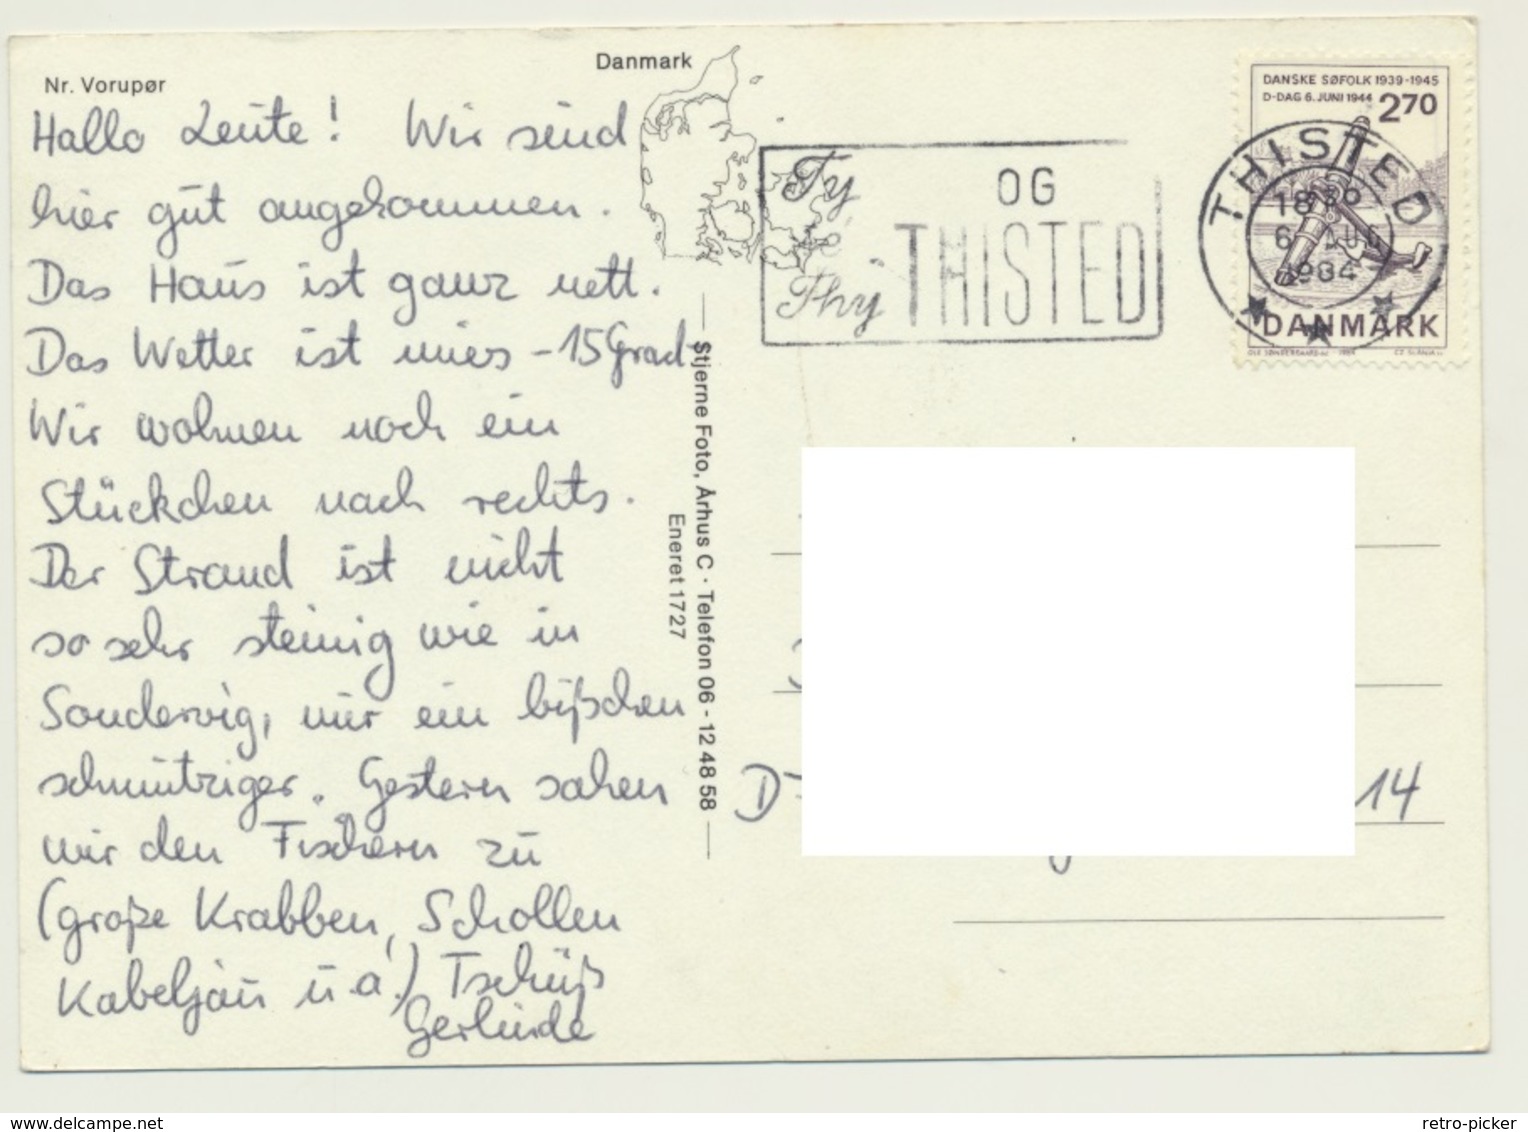 Nr. Vorupør
Danmark
Hallo Leute! Wir sind
hier gut angekommen.
Das Haus ist ganz nett.
Das Wetter ist mies - 15 Grad
Wir wohnen noch ein
Stückchen nach rechts.
Der Strand ist nicht
so sehr steinig wie in
Sondervig, nur ein bißchen
schmutziger. Gestern sahen
wir den Fischern zu
(große Krabben, Schollen
Kabeljau u.a.) Tschüß
Gerlinde
Stjerne Foto, Århus C · Telefon 06 - 12 48 58
Eneret 1727
Ty
Thy
OG
THISTED
DANSKE SØFOLK 1939-1945
D-DAG 6. JUNI 1944 270
THISTED
18 30
6 AUG
1984
DANMARK
1984 CZ. SLANIA
D-
14
delcampe.net
retro-picker